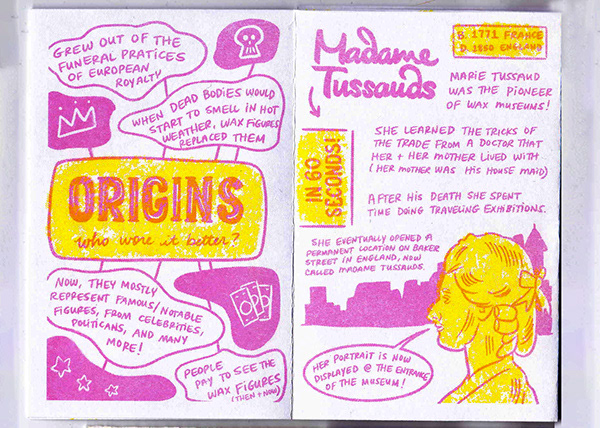 GREW OUT OF THE
FUNERAL PRATICES
OF EUROPEAN
ROYALTY
WHEN DEAD BODIES WOULD
START TO SMELL IN HOT
WEATHER, WAX FIGURES
REPLACED THEM
ORIGINS
who wore it better?
NOW, THEY MOSTLY
REPRESENT FAMOUS/NOTABLE
FIGURES, FROM CELEBRITIES,
POLITICANS, AND MANY
MORE!
PEOPLE
PAY TO SEE THE
WAX FIGURES
(THEN + NOW)
Madame
Tussauds
B. 1771 FRANCE
D. 1850 ENGLAND
IN 60
SECONDS!
MARIE TUSSAUD
WAS THE PIONEER
OF WAX MUSEUMS!
SHE LEARNED THE TRICKS OF
THE TRADE FROM A DOCTOR THAT
HER + HER MOTHER LIVED WITH
(HER MOTHER WAS HIS HOUSE MAID)
AFTER HIS DEATH SHE SPENT
TIME DOING TRAVELING EXHIBITIONS.
SHE EVENTUALLY OPENED A
PERMANENT LOCATION ON BAKER
STREET IN ENGLAND, NOW
CALLED MADAME TUSSAUDS.
HER PORTRAIT IS NOW
DISPLAYED @ THE ENTRANCE
OF THE MUSEUM!